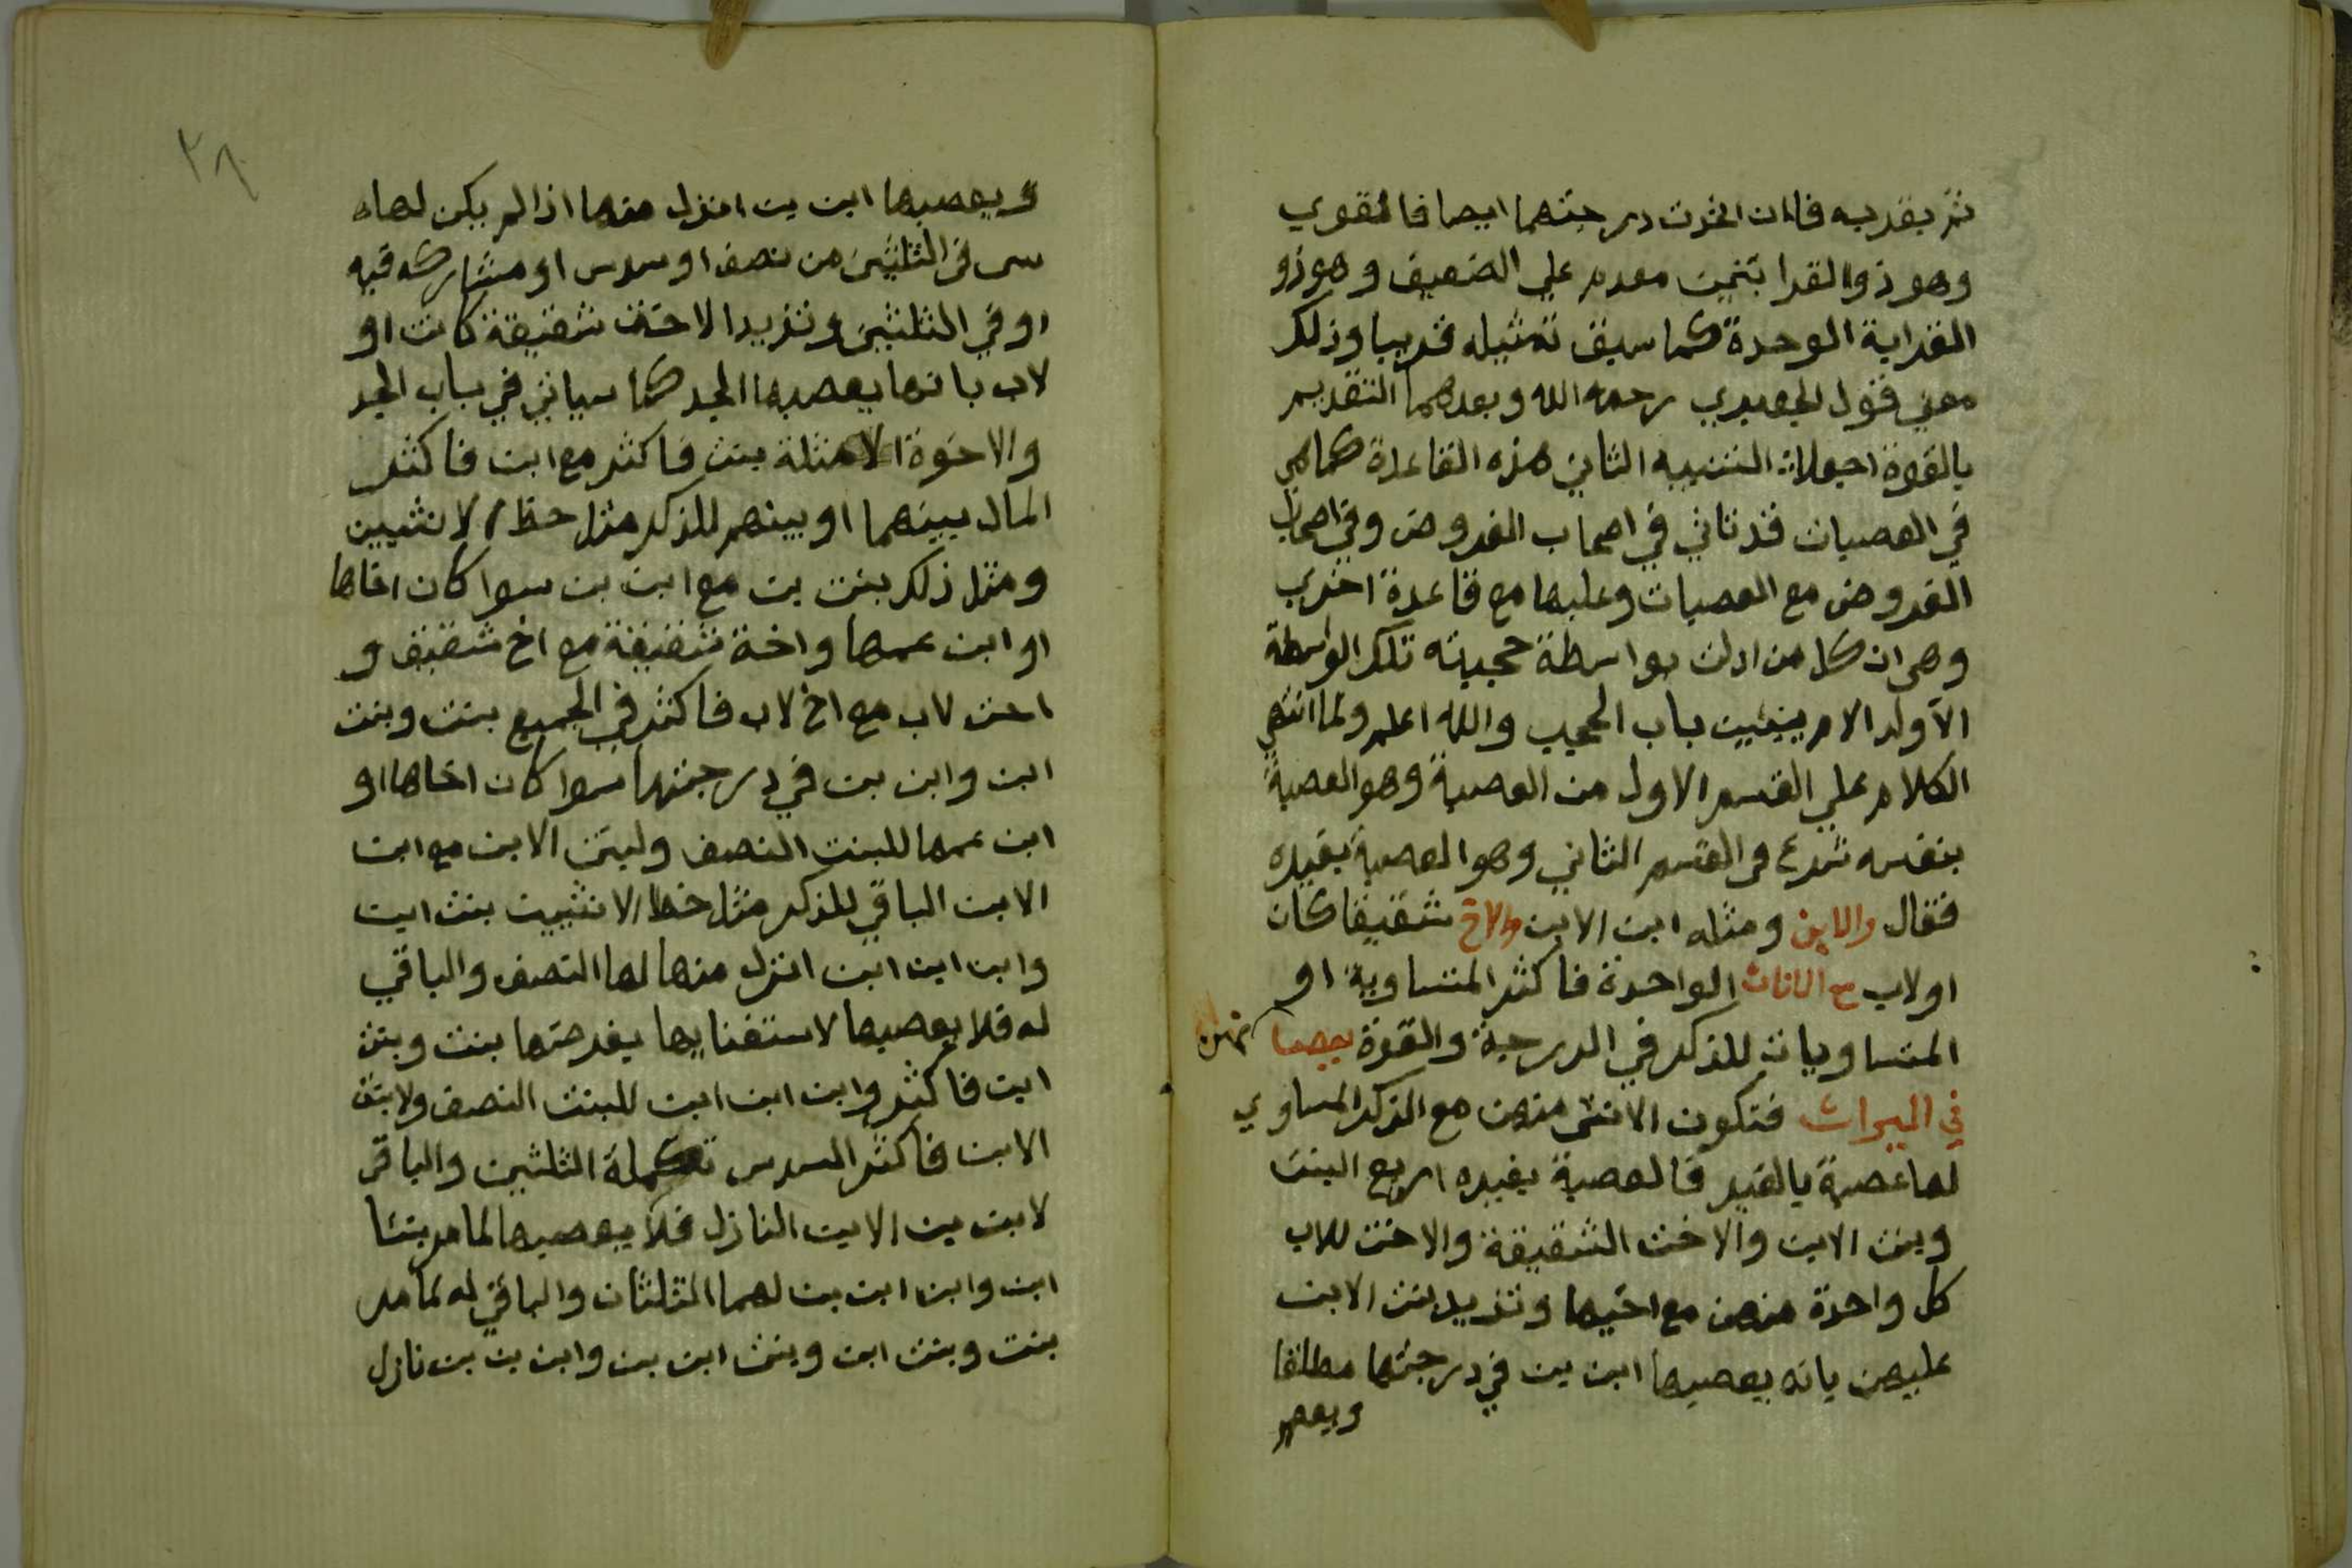 ثم بقربه فان اتحدت درجتهما ايضا فالقوي
وهو ذوالقرابتين مقدم علي الضعيف وهو ذو
القرابة الوحدة كما سبق تمثيله قريبا وذلك
معني قول الجعبري رحمه الله وبعدهما التقديم
بالقوة اجعلا التنبيه الثاني هذه القاعدة كما هي
في العصبات قد تاتي في اصحاب الفروض وفي اصحاب
الفروض مع العصبات وعليها مع قاعدة اخري
وهي ان كل من ادلي بواسطة حجبته تلك الواسطة
الا ولد الام ينبني باب الحجب والله اعلم ولما انتهي
الكلام علي القسم الاول من العصبة وهو العصبة
بنفسه شرع في القسم الثاني وهو العصبة بغيره
فقال والابن ومثله ابن الابن والاخ شقيقا كان
اولاب مع الاناث الواحدة فاكثر المتساوية او
المتساويات للذكر في الدرجة والقوة يعصبانهن
في الميراث فتكون الانثي منهن مع الذكر المساوي
لها عصبة بالغير فالعصبة بغيره اربع البنت
وبنت الابن والاخت الشقيقة والاخت للاب
كل واحدة منهن مع اخيها وتزيد بنت الابن
عليهن بانه يعصبها ابن بن في درجتها مطلقا
ويعصبها
٢٨
ويعصبها ابن بن انزل منها اذا لم يكن لها
سي في الثلثين من نصف او سدس او مشاركه فيه
او في الثلثين وتزيد الاخت شقيقة كانت او
لاب بانها يعصبها الجد كما سياتي في باب الجد
والاخوة الامثلة بنت فاكثر مع ابن فاكثر
المال بينهما او بينهم للذكر مثل حظ الانثيين
ومثل ذلك بنت بن مع ابن بن سوا كان اخاها
او ابن عمها واخة شقيقة مع اخ شقيق و
اخت لاب مع اخ لاب فاكثر في الجميع بنت وبنت
ابن وابن بن في درجتها سوا كان اخاها او
ابن عمها للبنت النصف ولبنت الابن مع ابن
الابن الباقي للذكر مثل حظ الانثيين بنت ابن
وابن ابن ابن انزل منها لها النصف والباقي
له فلا يعصبها لاستغنايها بفرضها بنت وبنت
ابن فاكثر وابن ابن ابن للبنت النصف ولابنت
الابن فاكثر السدس تكملة الثلثين والباقي
لابن بن الابن النازل فلا يعصبها لما مر بنتا
ابن وابن ابن بن لهما الثلثان والباقي له لما مر
بنت وبنت ابن وبنت ابن بن وابن بن بن نازل